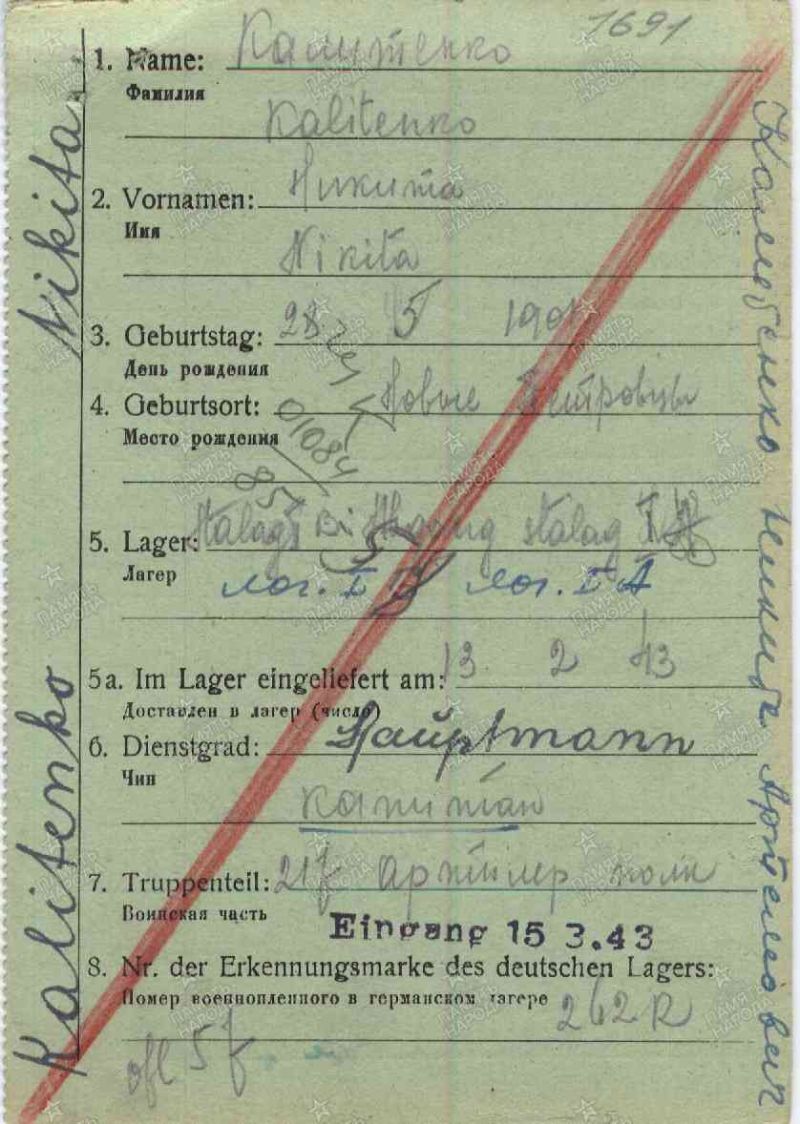 1691
1. Name: Калитенко
Фамилия
Kalitenko
2. Vornamen: Никита
Имя
Nikita
3. Geburtstag: 28 5
День рождения
4. Geburtsort: Новые Петровцы
Место рождения
01084
5. Lager: Stalag stalag
Лагерь
лаг. I лаг. I A
5a. Im Lager eingeliefert am: 13 2 43
Доставлен в лагер (число)
6. Dienstgrad: Hauptmann
Чин
капитан
7. Truppenteil: 217 Артилер полк
Воинская часть
Eingang 15 3.43
8. Nr. der Erkennungsmarke des deutschen Lagers:
Номер военнопленного в германском лагере 262
Kalitenko Nikita
Никита
ПАМЯТЬ НАРОДА